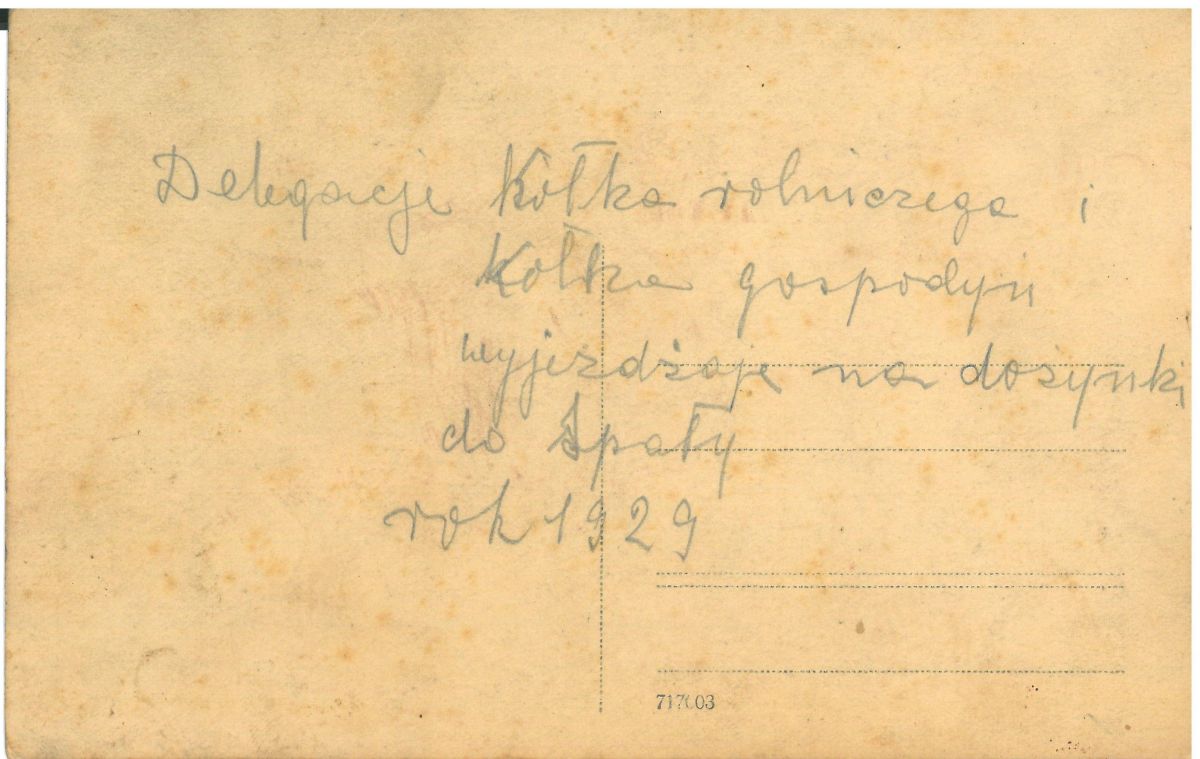 Delegacje Kółka rolniczego i
Kółka gospodyń
wyjeżdżają na dożynki
do Spały
rok 1929
717003